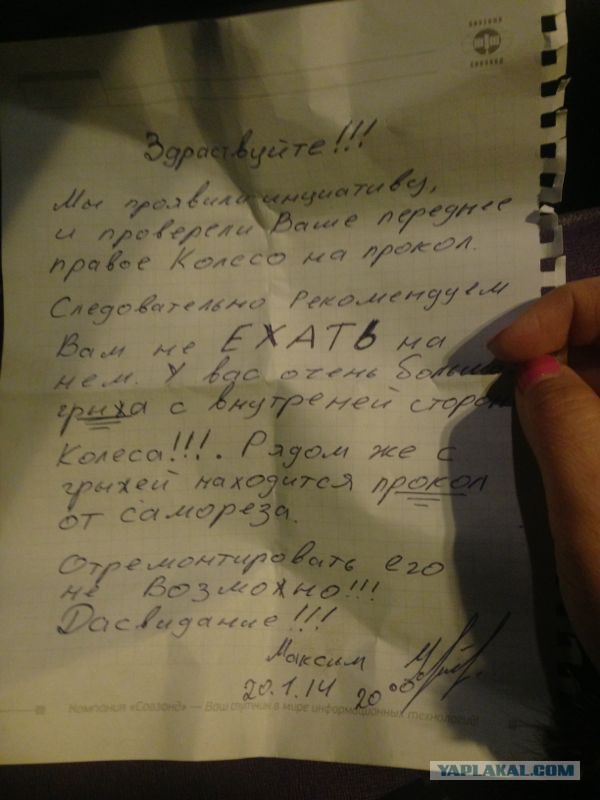 Здраствуйте!!!
Мы проявили инциативу,
и проверели Ваше переднее
правое Колесо на прокол.
Следовательно рекомендуем
Вам не ЕХАТЬ на
нем. У вас очень
грыха с внутреней сторон
Колеса!!!. Рядом же с
грыхей находится прокол
от самореза.
Отремонтировать его
не возможно!!!
Дасвидание!!!
Максим
20.1.14 20 00
Компания «Совзонд» — Ваш спутник в мире информационных технологий!
YAPLAKAL.COM